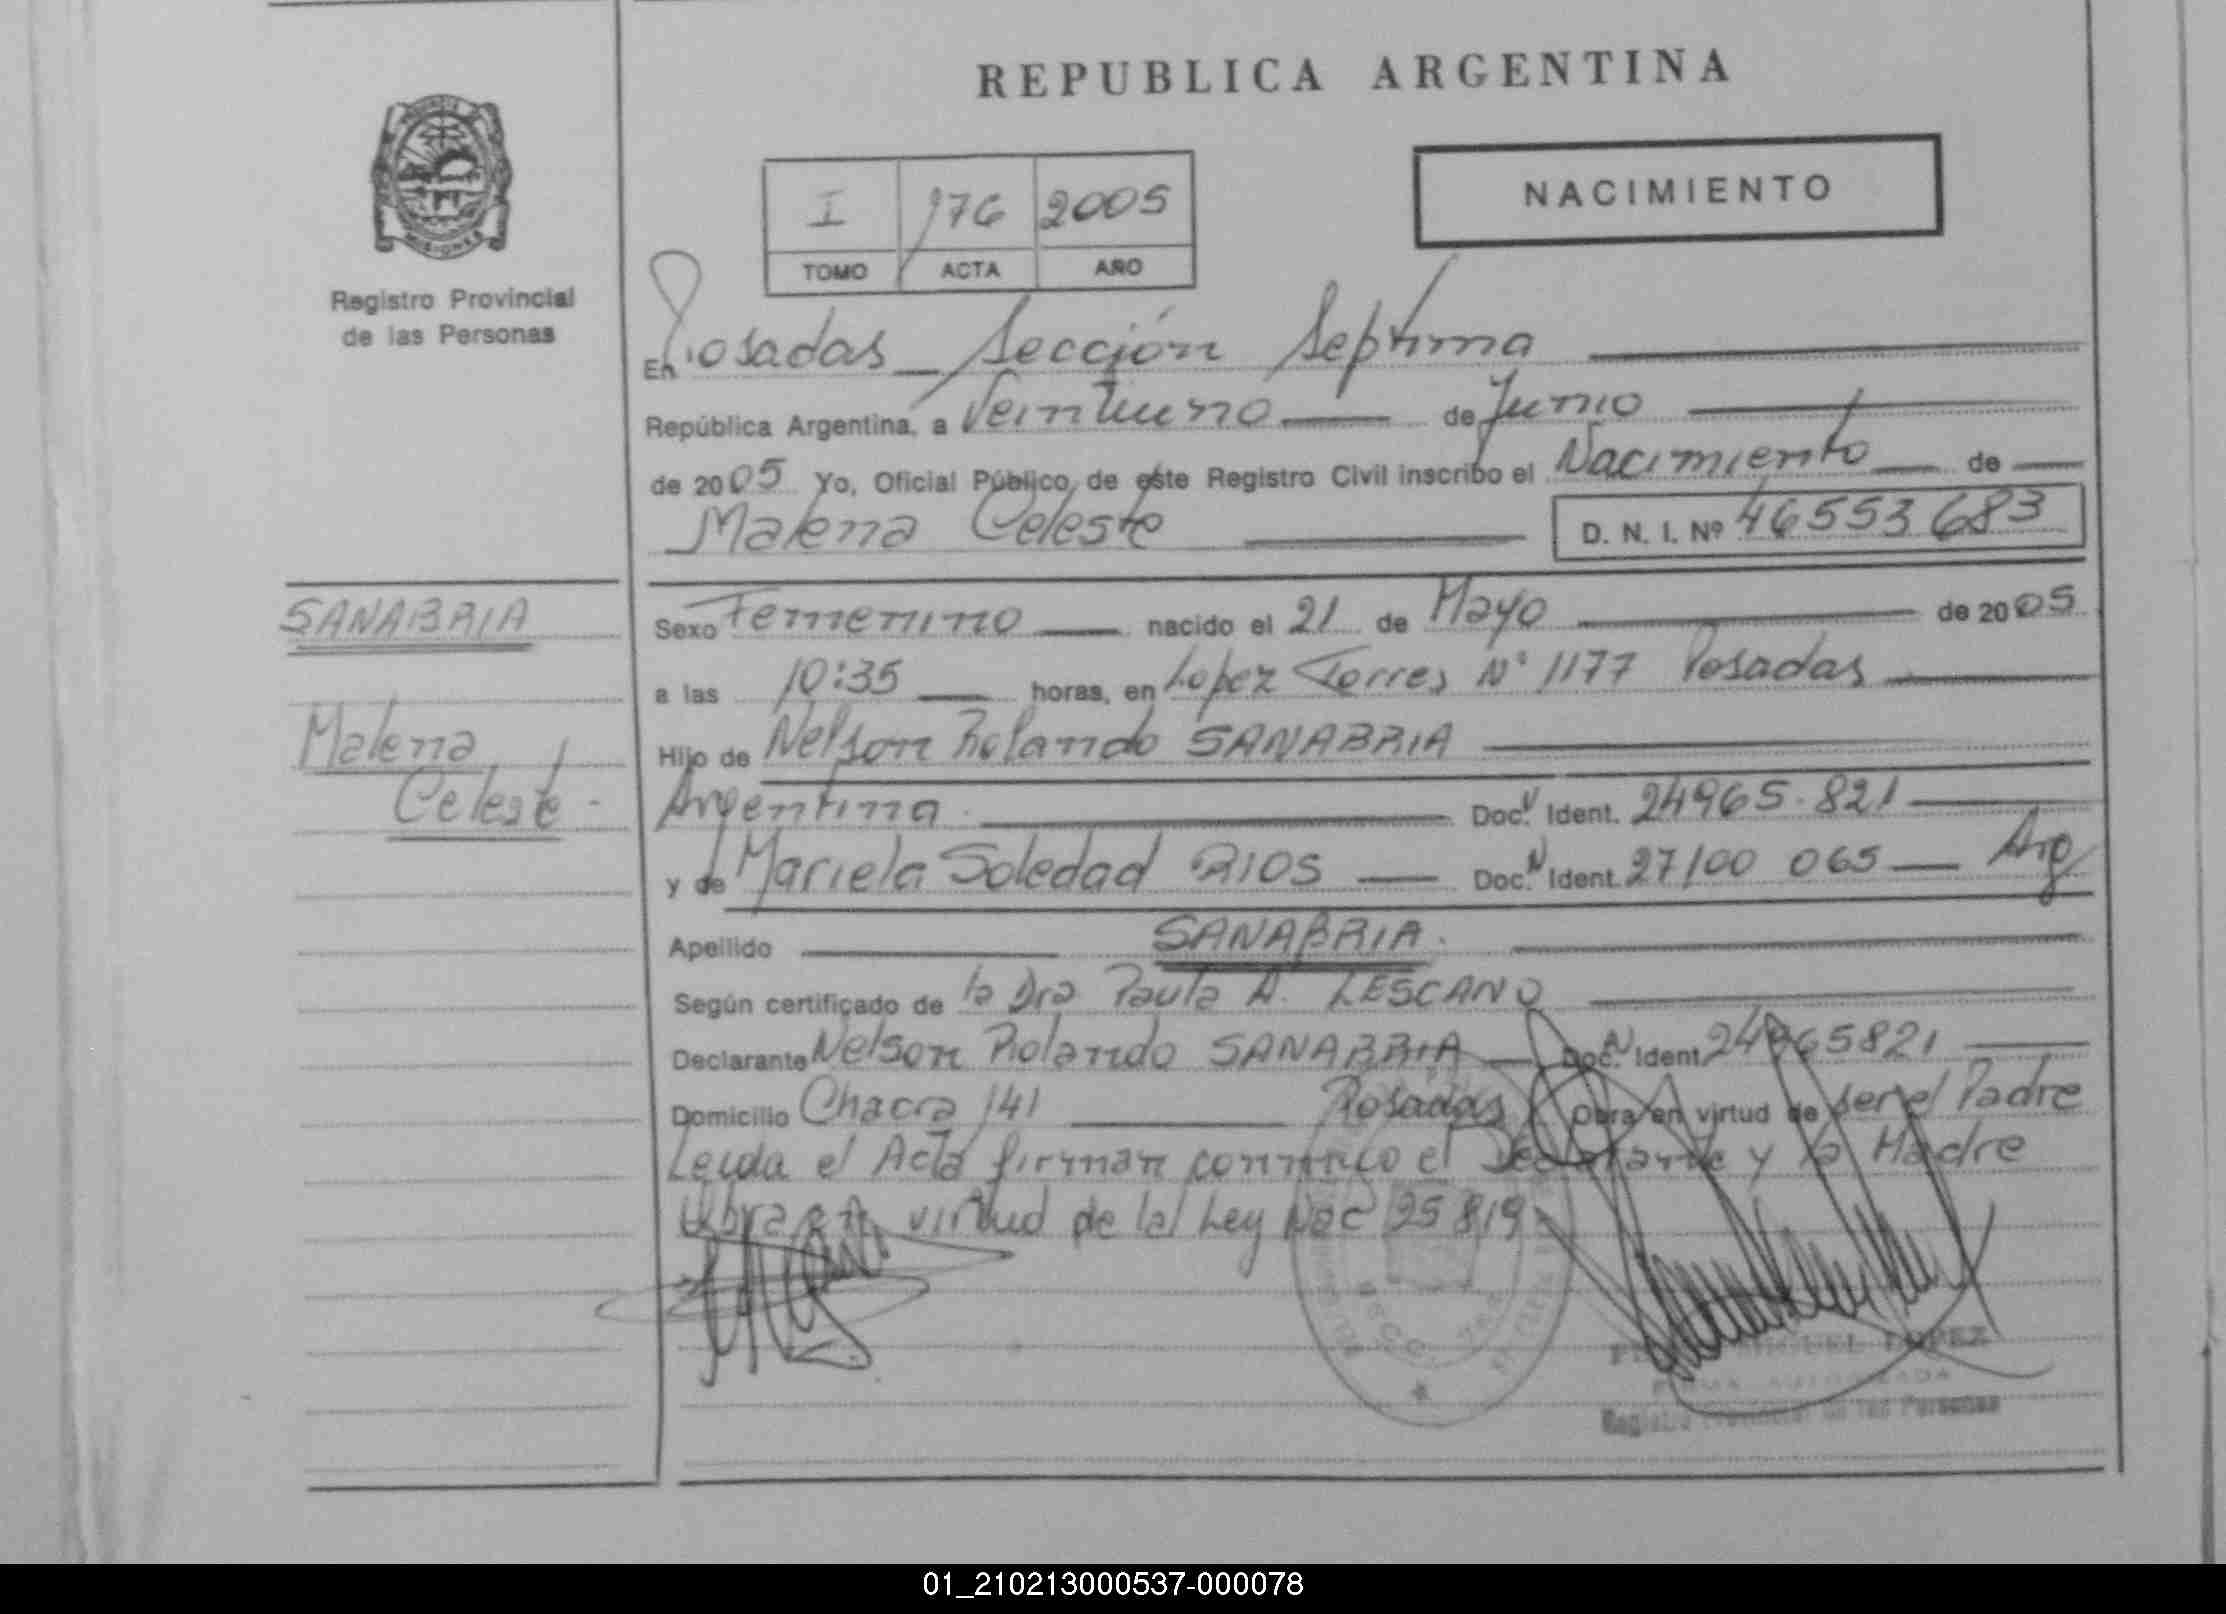 REPUBLICA ARGENTINA
NACIMIENTO
I 176 2005
TOMO ACTA AÑO
MISIONES
Registro Provincial
de las Personas
En Posadas - Sección Septima
República Argentina, a Veintiuno de Junio
de 2005 Yo, Oficial Público de este Registro Civil inscribo el Nacimiento de
Malena Celeste D. N. I. Nº 46553683
SANABRIA
Malena
Celeste -
Sexo Femenino nacido el 21 de Mayo de 2005
a las 10:35 horas, en Lopez Torres N° 1177 Posadas
Hijo de Nelson Rolando SANABRIA
Argentina Doc. Ident. 24965.821
y de Mariela Soledad RIOS Doc. Ident. 27100 065 Arg
Apellido SANABRIA.
Según certificado de la Dra Paula A. LESCANO
Declarante Nelson Rolando SANABRIA Doc. Ident. 24965821
Domicilio Chacra 141 Posadas Obra en virtud de ser el Padre
Leida el Acta firman conmigo el Declarante y la Madre
Obra en virtud de la Ley Nac 25819
LOPEZ
Registro Provincial de las Personas
01_210213000537-000078